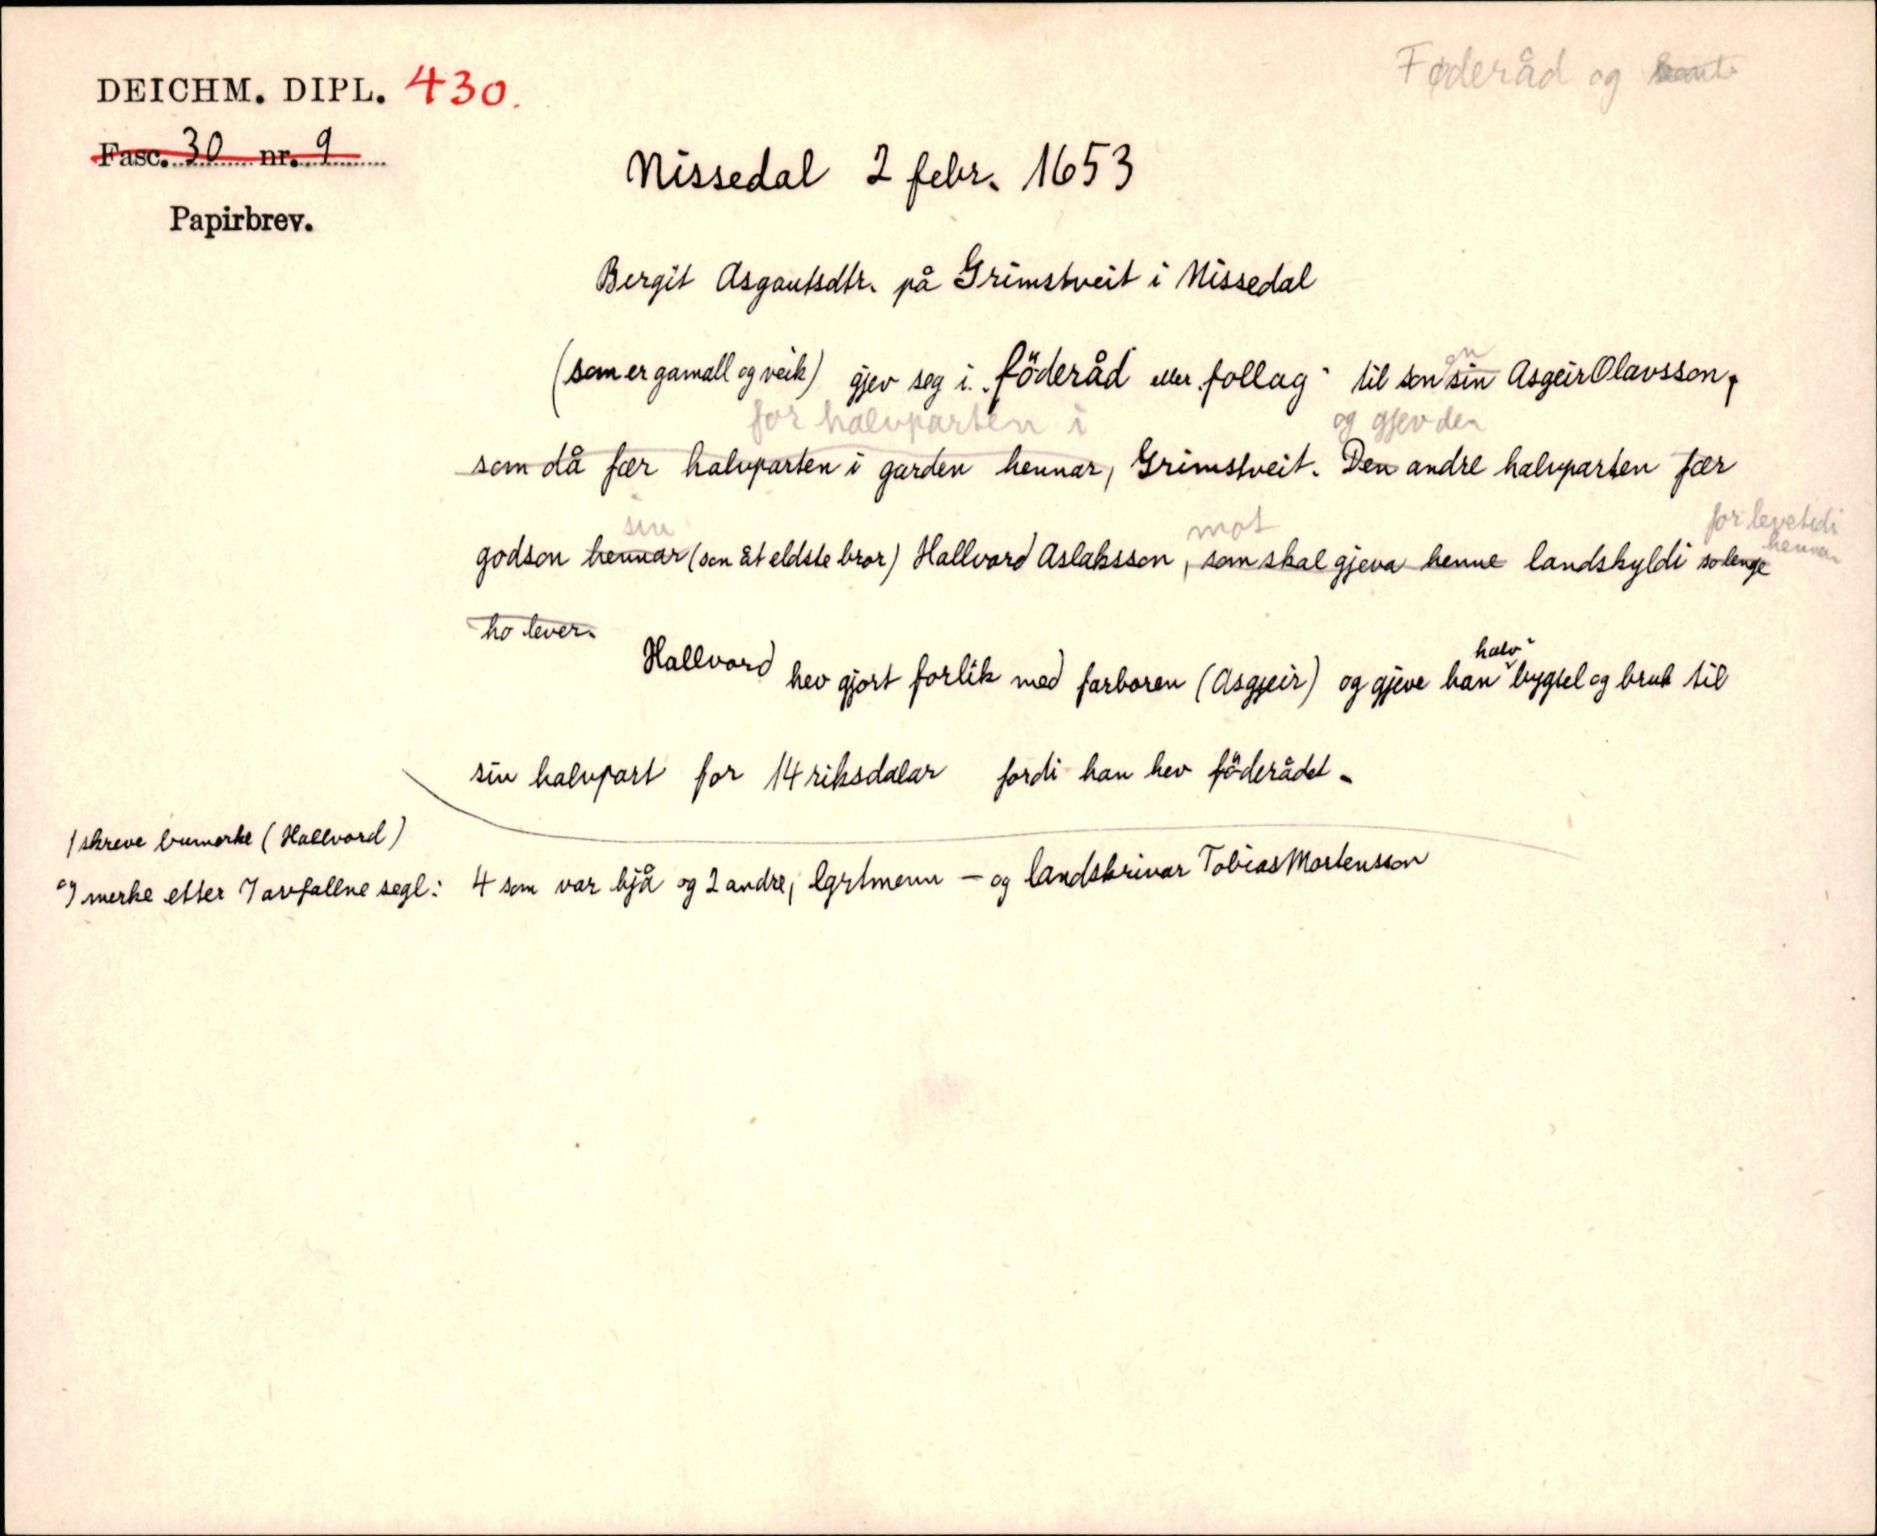 DEICHM. DIPL. 430.
Føderåd og
Fasc. 30 nr. 9
Papirbrev.
Nissedal 2 febr. 1653
Bergit Asgautsdtr. på Grimstveit i Nissedal
(som er gamall og veik) gjev seg i "föderåd eller follag" til son sin Asgeir Olavsson,
for halvparten i og gjev den
som då fær halvparten i garden hennar, Grimstveit. Den andre halvparten fær
sin mot for levetidi hennar
godson hennar (son åt eldste bror) Hallvord Aslaksson, som skal gjeva henne landskyldi so lenge
ho lever.
Hallvord hev gjort forlik med farboren (Asgjeir) og gjeve han "halv" bygsel og bruk til
sin halvpart for 14 riksdalar fordi han hev föderådet.
1 skreve bumerke (Hallvord)
og merke etter 7 avfallne segl: 4 som var hjå og 2 andre, lgrtmenn – og landskrivar Tobias Mortensson